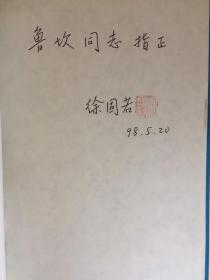 鲁坎同志指正
徐固若
98.5.20